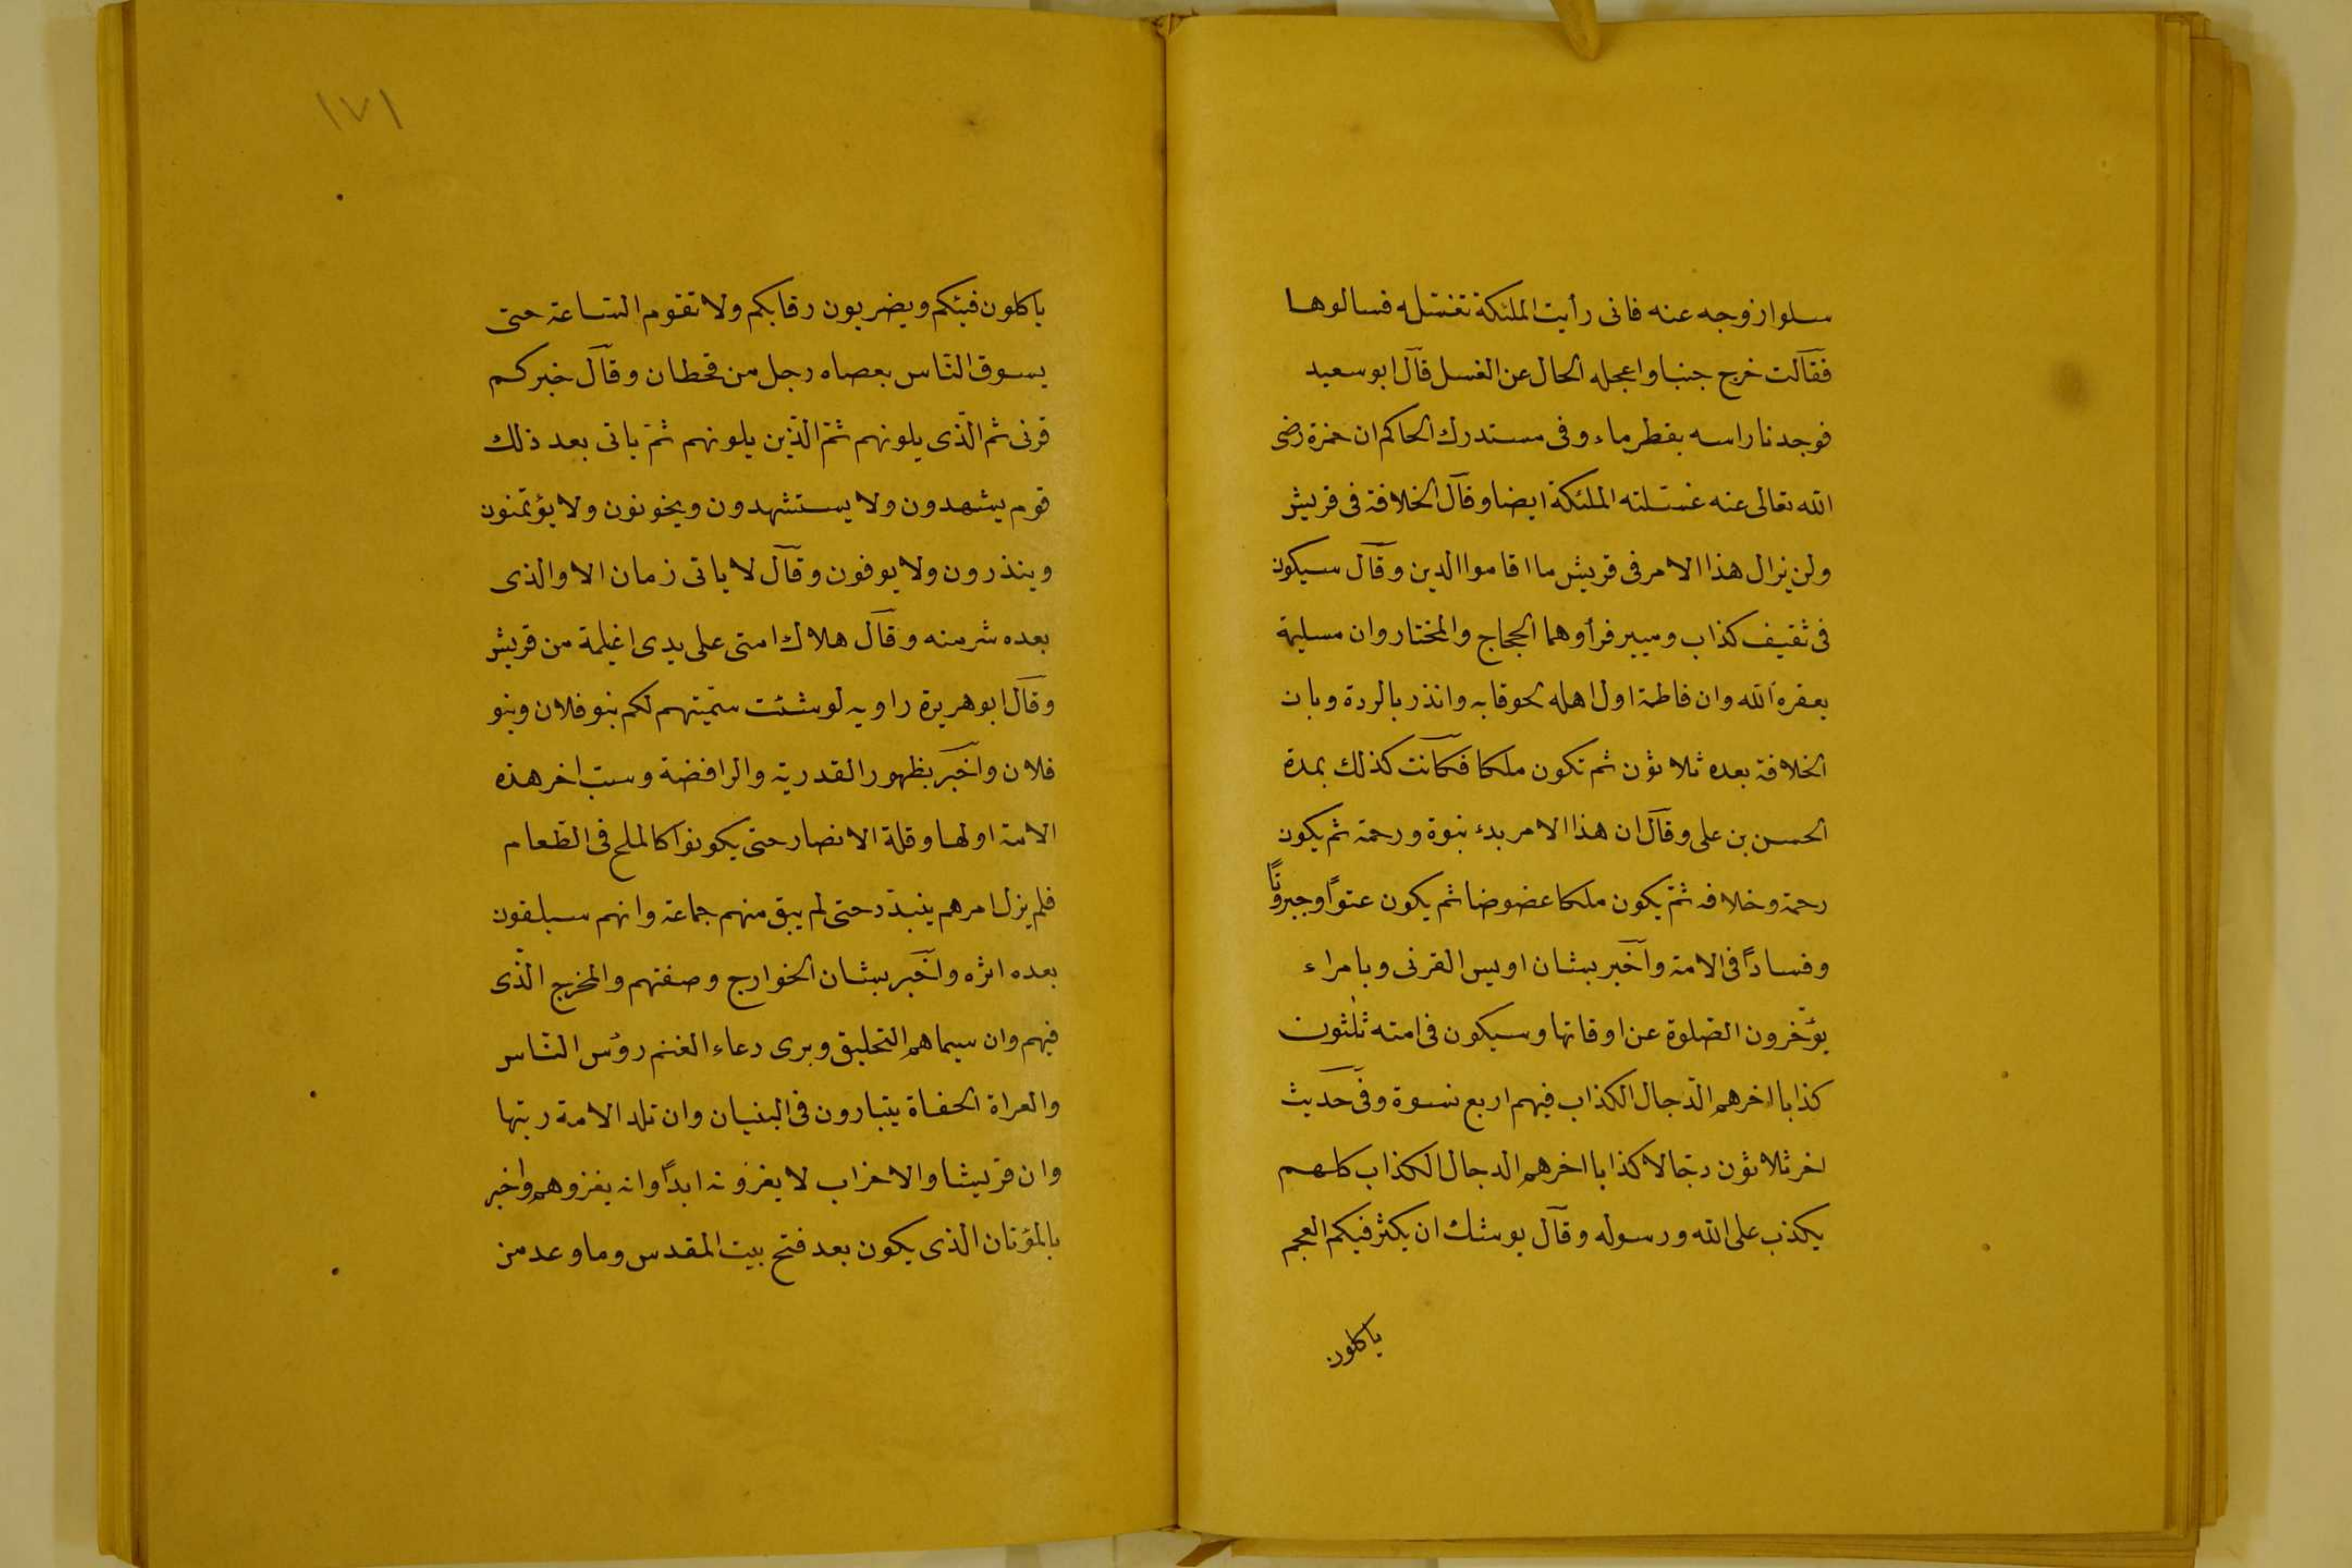 سلوا زوجه عنه فانى رأيت الملئكة تغسّله فسالوها
فقالت خرج جنبا واعجله الحال عن الغسل قال ابو سعيد
فوجدنا راسه يقطر ماء وفى مستدرك الحاكم ان حمزة رضى
الله تعالى عنه غسّلته الملئكة ايضا وقال الخلافة فى قريش
ولن يزال هذا الامر فى قريش ما اقاموا الدين وقال سيكون
فى ثقيف كذاب ومبير فرأوهما الحجاج والمختار وان مسيلمة
يعقره الله وان فاطمة اول اهله لحوقا به وانذر بالردة وبان
الخلافة بعده ثلاثون ثم تكون ملكا فكانت كذلك بمدة
الحسن بن على وقال ان هذا الامر بدء نبوة ورحمة ثم يكون
رحمة وخلافه ثمّ يكون ملكا عضوضا ثم يكون عتوًا وجبروتًا
وفسادًا فى الامة واخبر بشان اويس القرنى وبامراء
يؤخّرون الصّلوة عن اوقاتها وسيكون فى امته ثلثون
كذابا اخرهم الدّجال الكذاب فيهم اربع نسوة وفى حديث
اخر ثلاثون دجّالا كذابا اخرهم الدجال الكذاب كلهم
يكذب على الله ورسوله وقال يوشك ان يكثر فيكم العجم
ياكلون
١٧١
ياكلون فيئكم ويضربون رقابكم ولا تقوم السّاعة حتى
يسوق النّاس بعصاه رجل من قحطان وقال خيركم
قرنى ثم الذّى يلونهم ثمّ الذّين يلونهم ثمّ ياتى بعد ذلك
قوم يشهدون ولا يستشهدون ويخونون ولا يؤتمنون
وينذرون ولا يوفون وقال لا ياتى زمان الا والذى
بعده شر منه وقال هلاك امتى على يدى اغيلمة من قريش
وقال ابو هريرة راويه لو شئت سمّيتهم لكم بنو فلان وبنو
فلان واخبر بظهور القدرية والرافضة وسب اخر هذه
الامة اولها وقلة الانصار حتى يكونوا كالملح فى الطّعام
فلم يزل امرهم يتبدّد حتى لم يبق منهم جماعة وانهم سيلقون
بعده اثره واخبر بشان الخوارج وصفتهم والمخرج الذّى
فيهم وان سيماهم التحليق ويرى رعاء الغنم رؤس النّاس
والعراة الحفاة يتبارون فى البنيان وان تلد الامة ربتها
وان قريشا والاحزاب لا يغزونه ابدًا وانه يغزوهم واخبر
بالموتان الذى يكون بعد فتح بيت المقدس وما وعد من